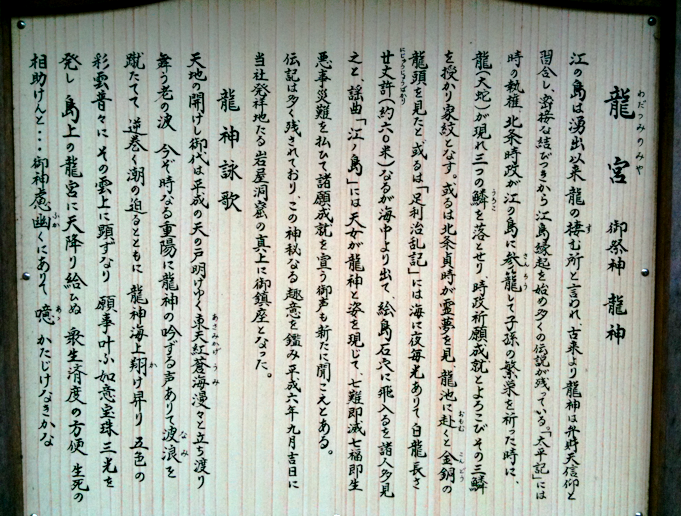 龍宮 御祭神 龍神
わだつみのみや
江の島は湧出以来、龍の棲む所と言われ、古来より龍神は弁財天信仰と
す
習合し、密接な結びつきから江島縁起を始め多くの伝説が残っている。「太平記」には
時の執権、北条時政が江の島に参籠して子孫の繁栄を祈った時に、
さんろう
龍(大蛇)が現れ三つの鱗を落とせり、時政祈願成就とよろこびその三鱗
うろこ
を授かり家紋となす。或るは北条貞時が霊夢を見、龍池に赴くと金銅の
おもむ こんどう
龍頭を見たと、或るは「足利治乱記」には海に夜毎光ありて白龍長さ
廿丈許(約六〇米)なるが海中より出て、絵島石穴に飛入るを諸人多見
にじゅうじょうばかり
之と、謡曲「江ノ島」には天女が龍神と姿を現じて、七難即滅七福即生
悪事災難を払ひて諸願成就を宣う御声も新たに聞こえとある。
伝記は多く残されており、この神秘なる趣意を鑑み平成六年九月吉日に
当社発祥地たる岩屋洞窟の真上に御鎮座となった。
龍神詠歌
天地の開けし御代は平成の天の戸明けゆく東天紅蒼海漫々と立ち渡り
あさみれげ うみ
舞う老の波 今ぞ時なる重陽に龍神の吟ずる声ありて波浪を
なみ
蹴たてて 逆巻く潮の迫るとともに 龍神海上翔け昇り 五色の
か
彩雲普々に その雲上に顕ずなり 願事叶ふ如意宝珠三光を
発し 島上の龍宮に天降り給ひぬ 衆生済度の方便 生死の
相助けんと・・・御神慮幽くにありて、噫 かたじけなきかな
ふか あゝ